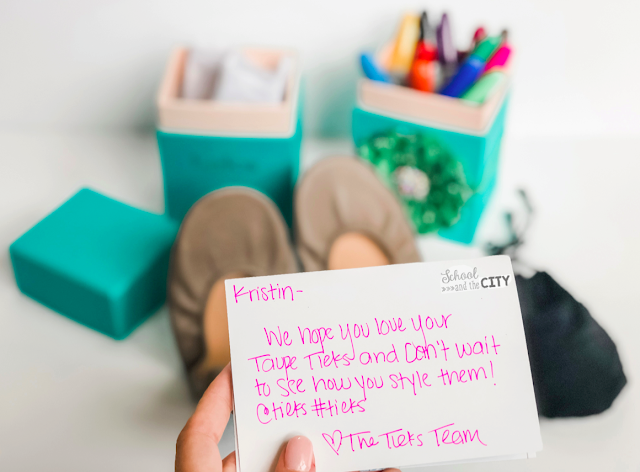 School
and the CITY
Kristin-
We hope you love your
Taupe Tieks and Don't wait
to see how you style them!
@tieks #tieks
♡The Tieks Team